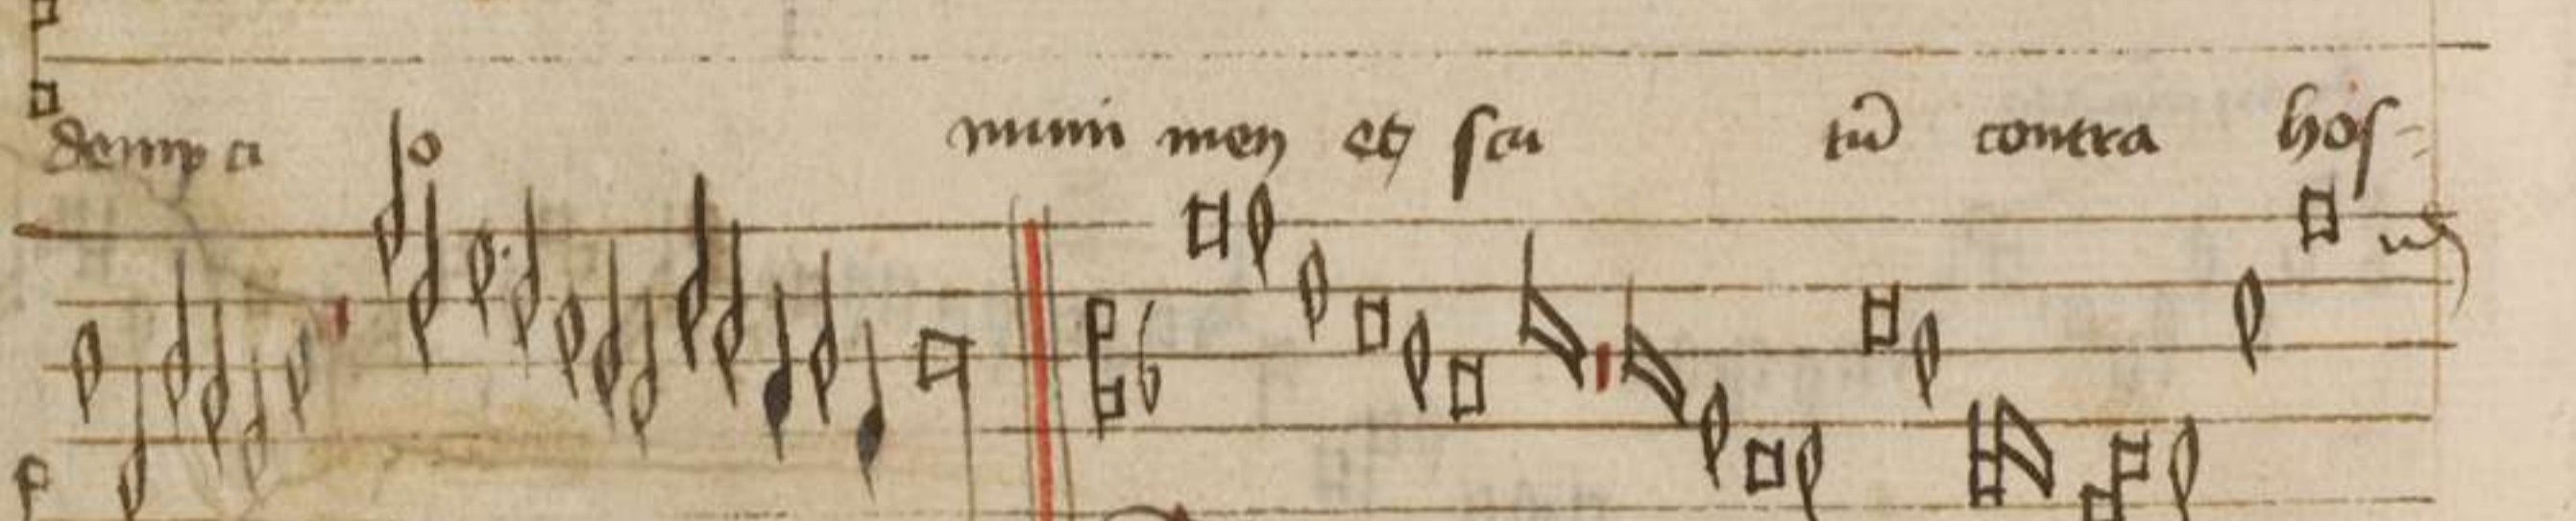 dempci o munimen et scu tū contra hos-